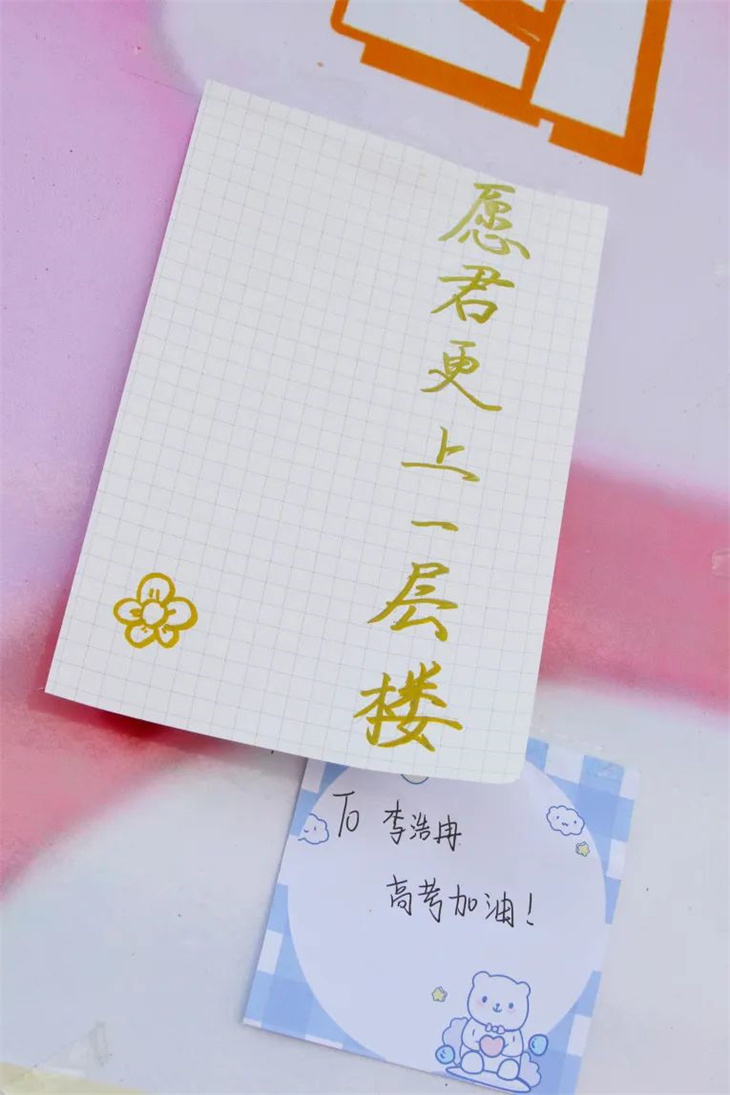 愿君更上一层楼
To 李浩冉
高考加油!